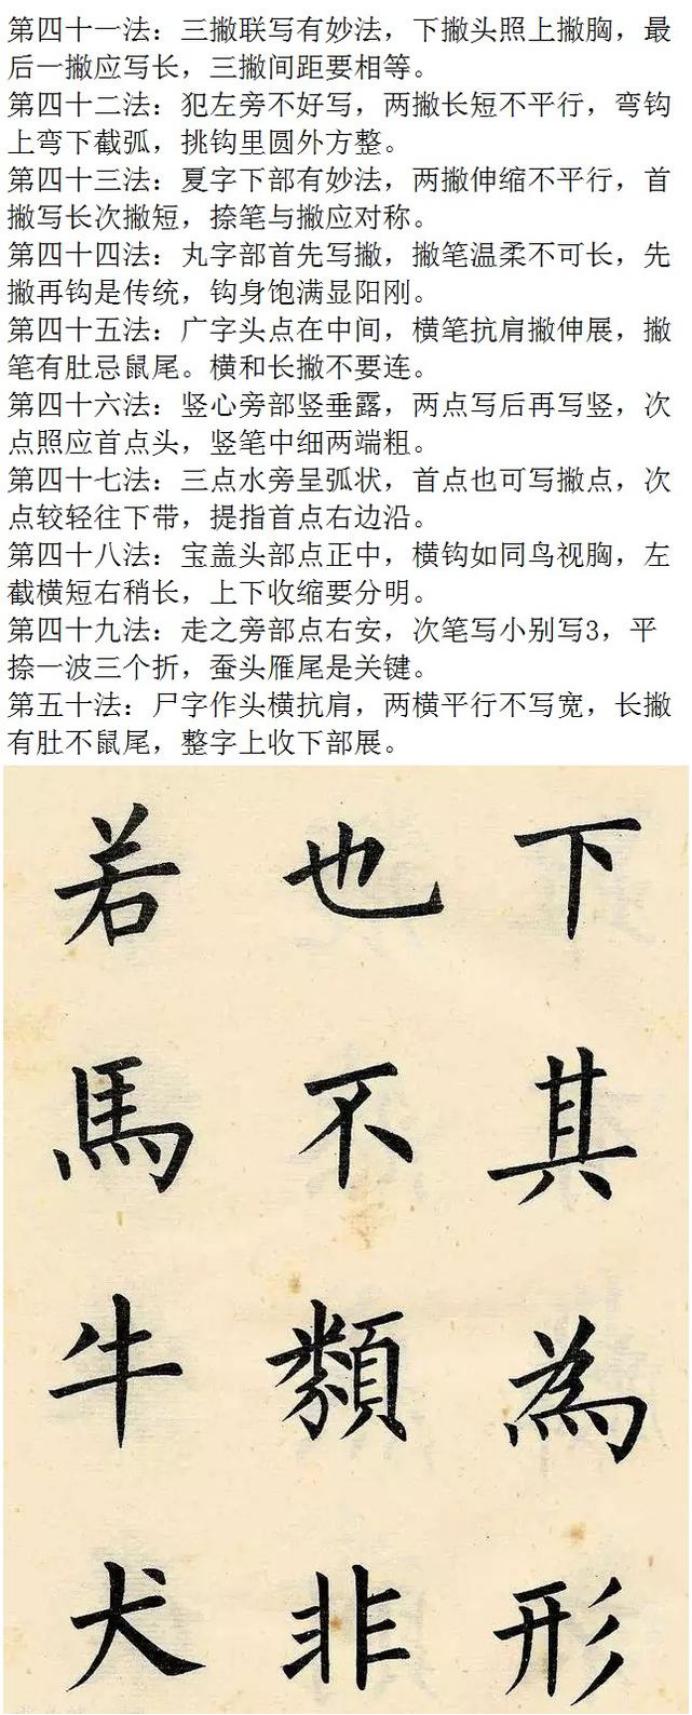 第四十一法：三撇联写有妙法，下撇头照上撇胸，最
后一撇应写长，三撇间距要相等。
第四十二法：犯左旁不好写，两撇长短不平行，弯钩
上弯下截弧，挑钩里圆外方整。
第四十三法：夏字下部有妙法，两撇伸缩不平行，首
撇写长次撇短，捺笔与撇应对称。
第四十四法：丸字部首先写撇，撇笔温柔不可长，先
撇再钩是传统，钩身饱满显阳刚。
第四十五法：广字头点在中间，横笔抗肩撇伸展，撇
笔有肚忌鼠尾。横和长撇不要连。
第四十六法：竖心旁部竖垂露，两点写后再写竖，次
点照应首点头，竖笔中细两端粗。
第四十七法：三点水旁呈弧状，首点也可写撇点，次
点较轻往下带，提指首点右边沿。
第四十八法：宝盖头部点正中，横钩如同鸟视胸，左
截横短右稍长，上下收缩要分明。
第四十九法：走之旁部点右安，次笔写小别写3，平
捺一波三个折，蚕头雁尾是关键。
第五十法：尸字作头横抗肩，两横平行不写宽，长撇
有肚不鼠尾，整字上收下部展。
下其為形
也不類非
若馬牛犬